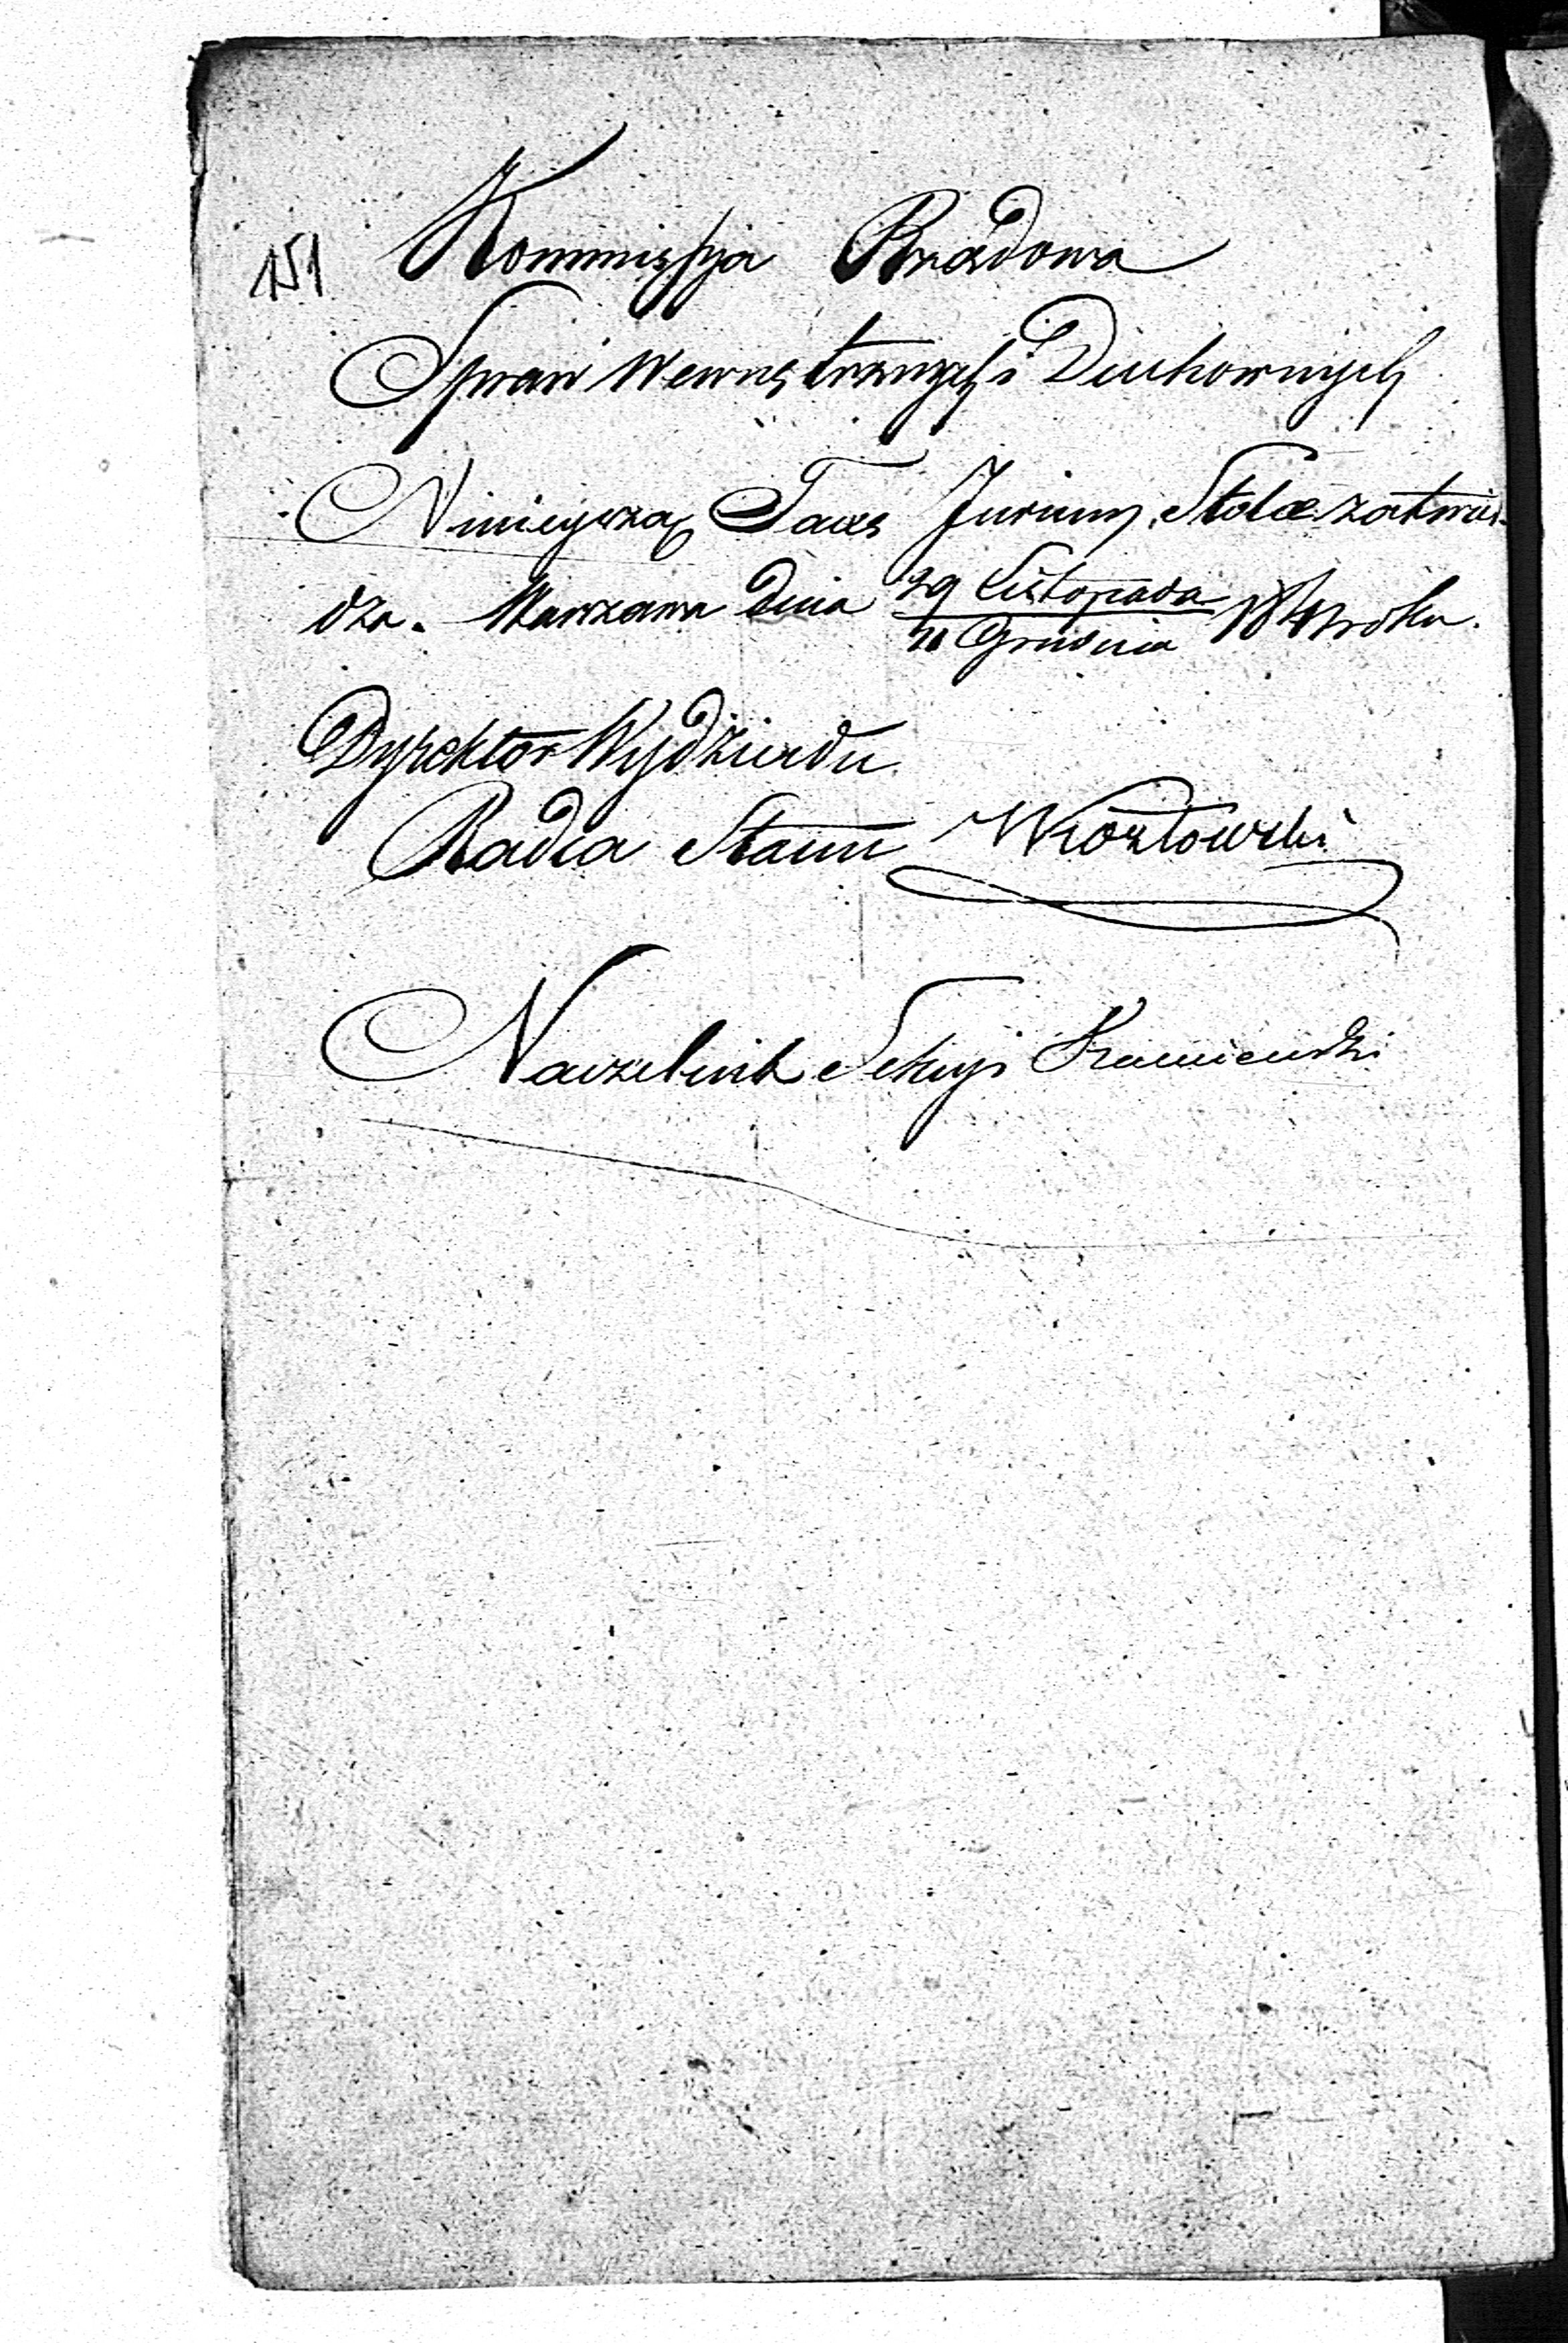 151 Kommissyja Rządowa
Spraw Wewnętrznych i Duchownych
Ninieyszą Taxę Jurium Stolæ zatwier-
dza. Warszawa dnia 29 Listopada
11 Grudnia 1841 roku.
Dyrektor Wydziału
Radca Stanu Kozłowski
Naczelnik Sekcyi Kamieński